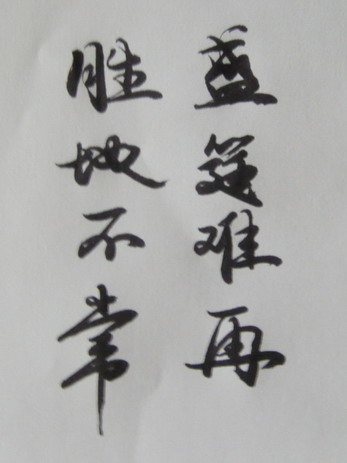 盛筵难再
胜地不常